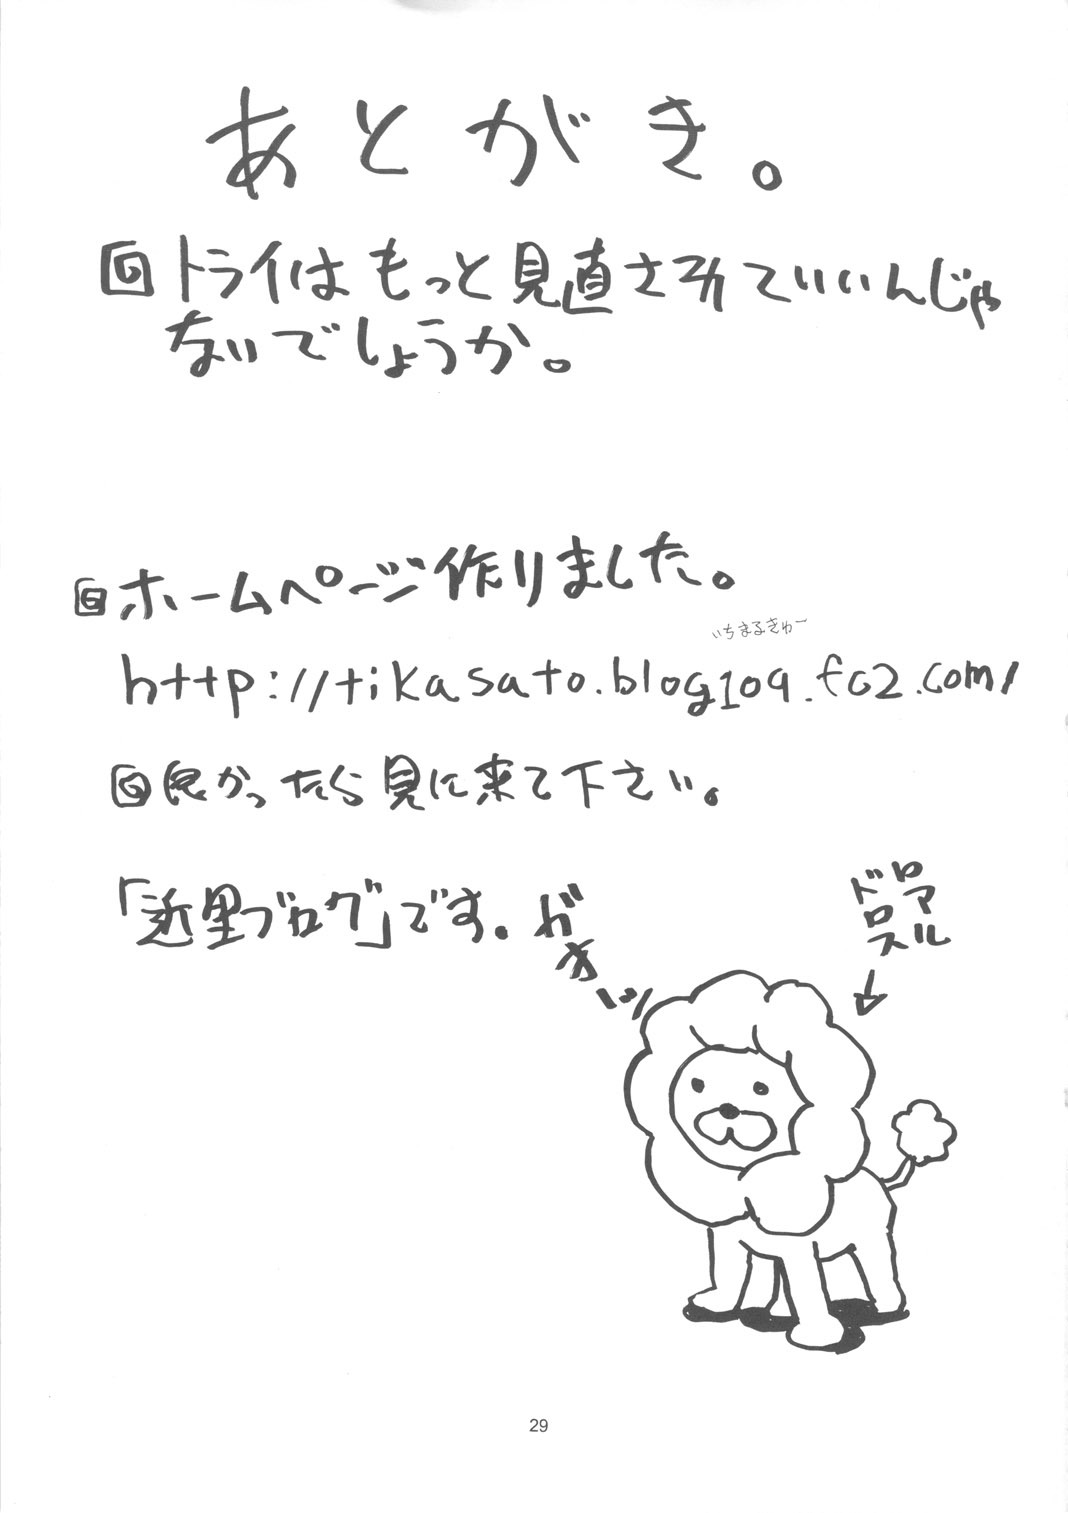 あとがき。
回トライはもっと見直されていいんじゃ
ないでしょうか。
回ホームページ作りました。
いちまるきゅー
http://tikasato.blog109.fc2.com/
回良かったら見に来て下さい。
「近里ブログ」です。がおーッ
ロアル
ドロス
29